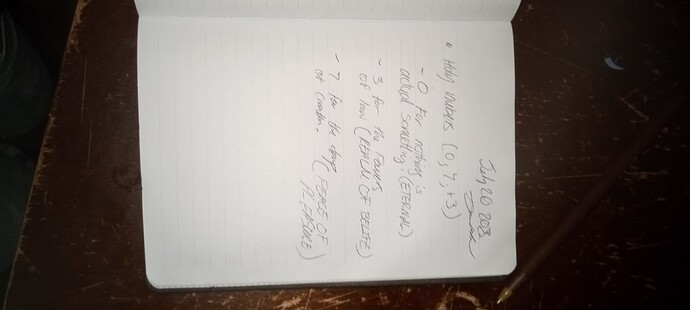 July 20 2023
• Holy numbers (0, 7, +3)
- 0 for nothing is
actual something. (ETERNAL)
- 3 for the Powers
of law (REALM OF BELIEF)
- 7 for the days
of creation. (PLACE OF
PLEASURE)